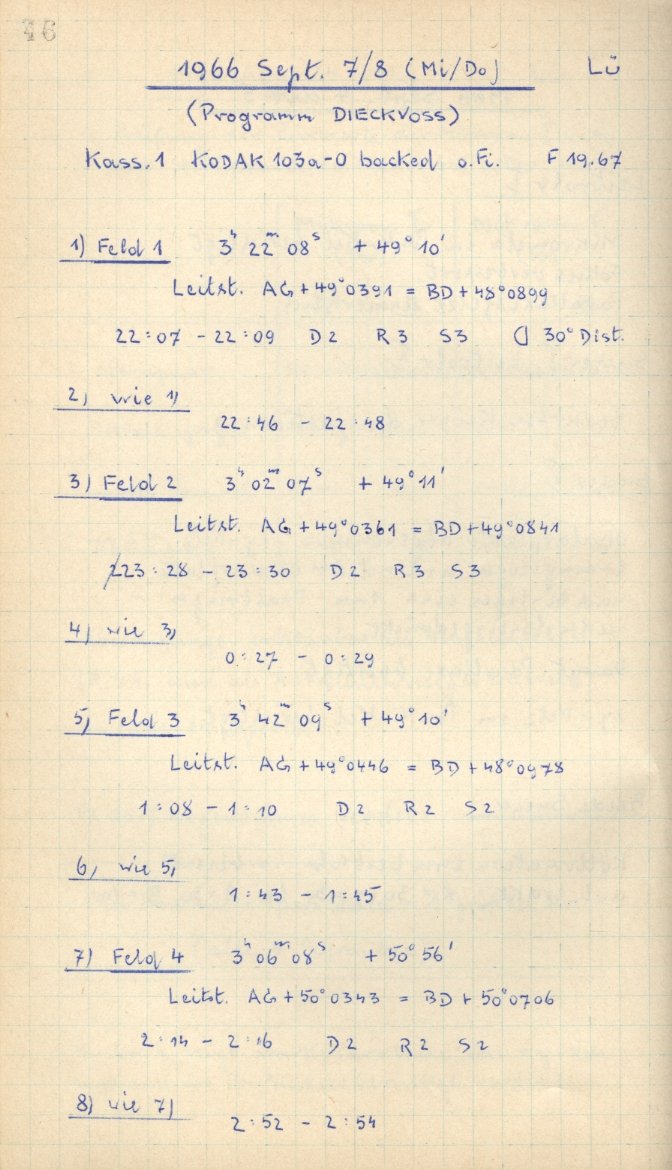 46
1966 Sept. 7/8 (Mi/Do) Lü
(Programm DIECKVOSS)
Kass. 1 KODAK 103a-O backed o.Fi. F 19.67
1) Feld 1 3h 22m 08s + 49° 10'
Leitst. AG + 49°0391 = BD + 48°0899
22:07 - 22:09 D2 R3 S3 ☾ 30° Dist.
2) wie 1)
22:46 - 22:48
3) Feld 2 3h 02m 07s + 49° 11'
Leitst. AG + 49°0361 = BD + 49°0841
23:28 - 23:30 D2 R3 S3
4) wie 3)
0:27 - 0:29
5) Feld 3 3h 42m 09s + 49° 10'
Leitst. AG + 49°0446 = BD + 48°0978
1:08 - 1:10 D2 R2 S2
6) wie 5)
1:43 - 1:45
7) Feld 4 3h 06m 08s + 50° 56'
Leitst. AG + 50°0343 = BD + 50°0706
2:14 - 2:16 D2 R2 S2
8) wie 7)
2:52 - 2:54